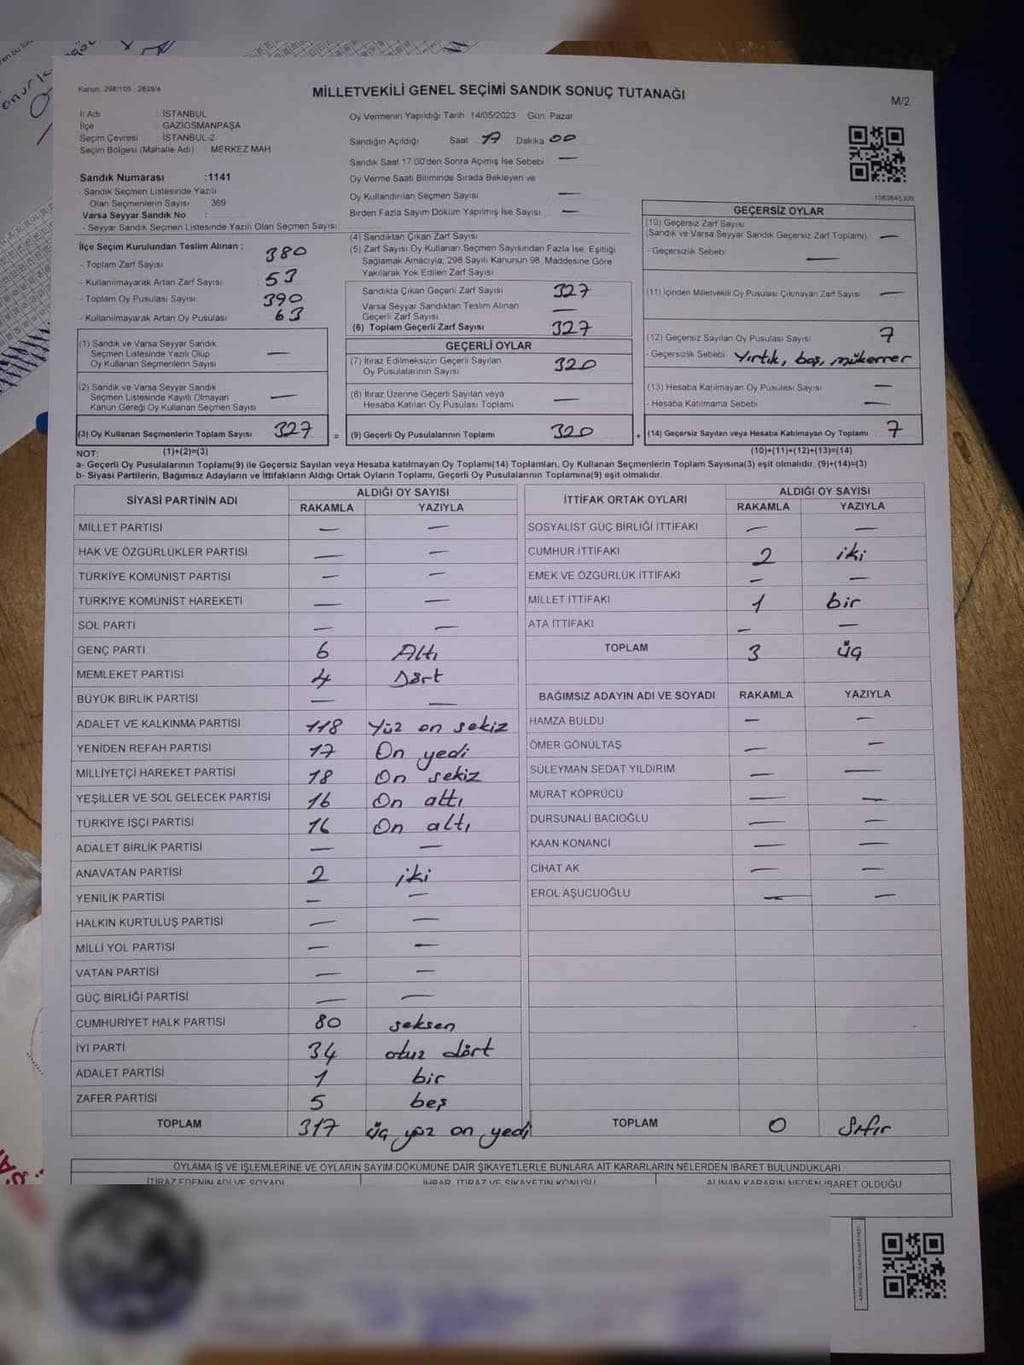 Kanun: 298/105 , 2839/4
MİLLETVEKİLİ GENEL SEÇİMİ SANDIK SONUÇ TUTANAĞI
M/2
İl Adı : İSTANBUL
İlçe GAZİOSMANPAŞA
Seçim Çevresi : İSTANBUL-2
Seçim Bölgesi (Mahalle Adı) MERKEZ MAH
Sandık Numarası :1141
- Sandık Seçmen Listesinde Yazılı
Olan Seçmenlerin Sayısı : 369
Varsa Seyyar Sandık No :
- Seyyar Sandık Seçmen Listesinde Yazılı Olan Seçmen Sayısı
Oy Vermenin Yapıldığı Tarih 14/05/2023 Gün: Pazar
Sandığın Açıldığı Saat Dakika 00
Sandık Saat 17:00'den Sonra Açılmış İse Sebebi —
Oy Verme Saati Bitiminde Sırada Bekleyen ve
Oy Kullandırılan Seçmen Sayısı —
Birden Fazla Sayım Döküm Yapılmış İse Sayısı —
İlçe Seçim Kurulundan Teslim Alınan ;
- Toplam Zarf Sayısı 380
- Kullanılmayarak Artan Zarf Sayısı 53
- Toplam Oy Pusulası Sayısı 390
- Kullanılmayarak Artan Oy Pusulası 63
(1) Sandık ve Varsa Seyyar Sandık
Seçmen Listesinde Yazılı Olup
Oy Kullanan Seçmenlerin Sayısı —
(2) Sandık ve Varsa Seyyar Sandık
Seçmen Listesinde Kayıtlı Olmayan
Kanun Gereği Oy Kullanan Seçmen Sayısı —
(3) Oy Kullanan Seçmenlerin Toplam Sayısı 327 =
(4) Sandıktan Çıkan Zarf Sayısı
(5) Zarf Sayısı Oy Kullanan Seçmen Sayısından Fazla İse, Eşitliği
Sağlamak Amacıyla; 298 Sayılı Kanunun 98. Maddesine Göre
Yakılarak Yok Edilen Zarf Sayısı
Sandıkta Çıkan Geçerli Zarf Sayısı 327
Varsa Seyyar Sandıktan Teslim Alınan
Geçerli Zarf Sayısı —
(6) Toplam Geçerli Zarf Sayısı 327
GEÇERLİ OYLAR
(7) İtiraz Edilmeksizin Geçerli Sayılan
Oy Pusulalarının Sayısı 320
(8) İtiraz Üzerine Geçerli Sayılan veya
Hesaba Katılan Oy Pusulası Toplamı —
(9) Geçerli Oy Pusulalarının Toplamı 320 +
GEÇERSİZ OYLAR
(10) Geçersiz Zarf Sayısı
(Sandık ve Varsa Seyyar Sandık Geçersiz Zarf Toplamı) —
- Geçersizlik Sebebi —
(11) İçinden Milletvekili Oy Pusulası Çıkmayan Zarf Sayısı —
(12) Geçersiz Sayılan Oy Pusulası Sayısı 7
- Geçersizlik Sebebi Yırtık, boş, mükerrer
(13) Hesaba Katılmayan Oy Pusulası Sayısı —
- Hesaba Katılmama Sebebi —
(14) Geçersiz Sayılan veya Hesaba Katılmayan Oy Toplamı 7
NOT: (1)+(2)=(3) (10)+(11)+(12)+(13)=(14)
a- Geçerli Oy Pusulalarının Toplamı(9) ile Geçersiz Sayılan veya Hesaba katılmayan Oy Toplamı(14) Toplamları, Oy Kullanan Seçmenlerin Toplam Sayısına(3) eşit olmalıdır. (9)+(14)=(3)
b- Siyasi Partilerin, Bağımsız Adayların ve İttifakların Aldığı Ortak Oyların Toplamı, Geçerli Oy Pusulalarının Toplamına(9) eşit olmalıdır.
SİYASİ PARTİNİN ADI ALDIĞI OY SAYISI
RAKAMLA YAZIYLA
MİLLET PARTİSİ — —
HAK VE ÖZGÜRLÜKLER PARTİSİ — —
TÜRKİYE KOMÜNİST PARTİSİ — —
TÜRKİYE KOMÜNİST HAREKETİ — —
SOL PARTİ — —
GENÇ PARTİ 6 Altı
MEMLEKET PARTİSİ 4 Dört
BÜYÜK BİRLİK PARTİSİ — —
ADALET VE KALKINMA PARTİSİ 118 Yüz on sekiz
YENİDEN REFAH PARTİSİ 17 On yedi
MİLLİYETÇİ HAREKET PARTİSİ 18 On sekiz
YEŞİLLER VE SOL GELECEK PARTİSİ 16 On altı
TÜRKİYE İŞÇİ PARTİSİ 16 On altı
ADALET BİRLİK PARTİSİ — —
ANAVATAN PARTİSİ 2 iki
YENİLİK PARTİSİ — —
HALKIN KURTULUŞ PARTİSİ — —
MİLLİ YOL PARTİSİ — —
VATAN PARTİSİ — —
GÜÇ BİRLİĞİ PARTİSİ — —
CUMHURİYET HALK PARTİSİ 80 seksen
İYİ PARTİ 34 otuz dört
ADALET PARTİSİ 1 bir
ZAFER PARTİSİ 5 beş
TOPLAM 317 üç yüz on yedi
İTTİFAK ORTAK OYLARI ALDIĞI OY SAYISI
RAKAMLA YAZIYLA
SOSYALİST GÜÇ BİRLİĞİ İTTİFAKI — —
CUMHUR İTTİFAKI 2 iki
EMEK VE ÖZGÜRLÜK İTTİFAKI — —
MİLLET İTTİFAKI 1 bir
ATA İTTİFAKI — —
TOPLAM 3 üç
BAĞIMSIZ ADAYIN ADI VE SOYADI RAKAMLA YAZIYLA
HAMZA BULDU — —
ÖMER GÖNÜLTAŞ — —
SÜLEYMAN SEDAT YILDIRIM — —
MURAT KÖPRÜCÜ — —
DURSUNALİ BACIOĞLU — —
KAAN KONANCİ — —
CİHAT AK — —
EROL AŞUCUOĞLU — —
TOPLAM 0 Sıfır
OYLAMA İŞ VE İŞLEMLERİNE VE OYLARIN SAYIM DÖKÜMÜNE DAİR ŞİKAYETLERLE BUNLARA AİT KARARLARIN NELERDEN İBARET BULUNDUKLARI
İTİRAZ EDENİN ADI VE SOYADI İHBAR, İTİRAZ VE ŞİKAYETİN KONUSU ALINAN KARARIN NEDEN İBARET OLDUĞU